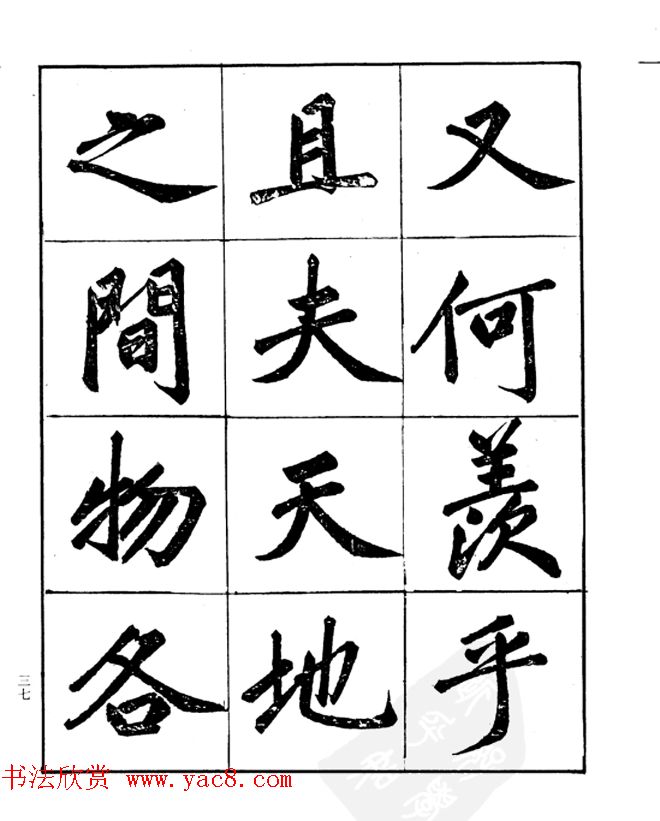 又何羨乎
且夫天地
之間物各
三七
书法欣赏 www.yac8.com